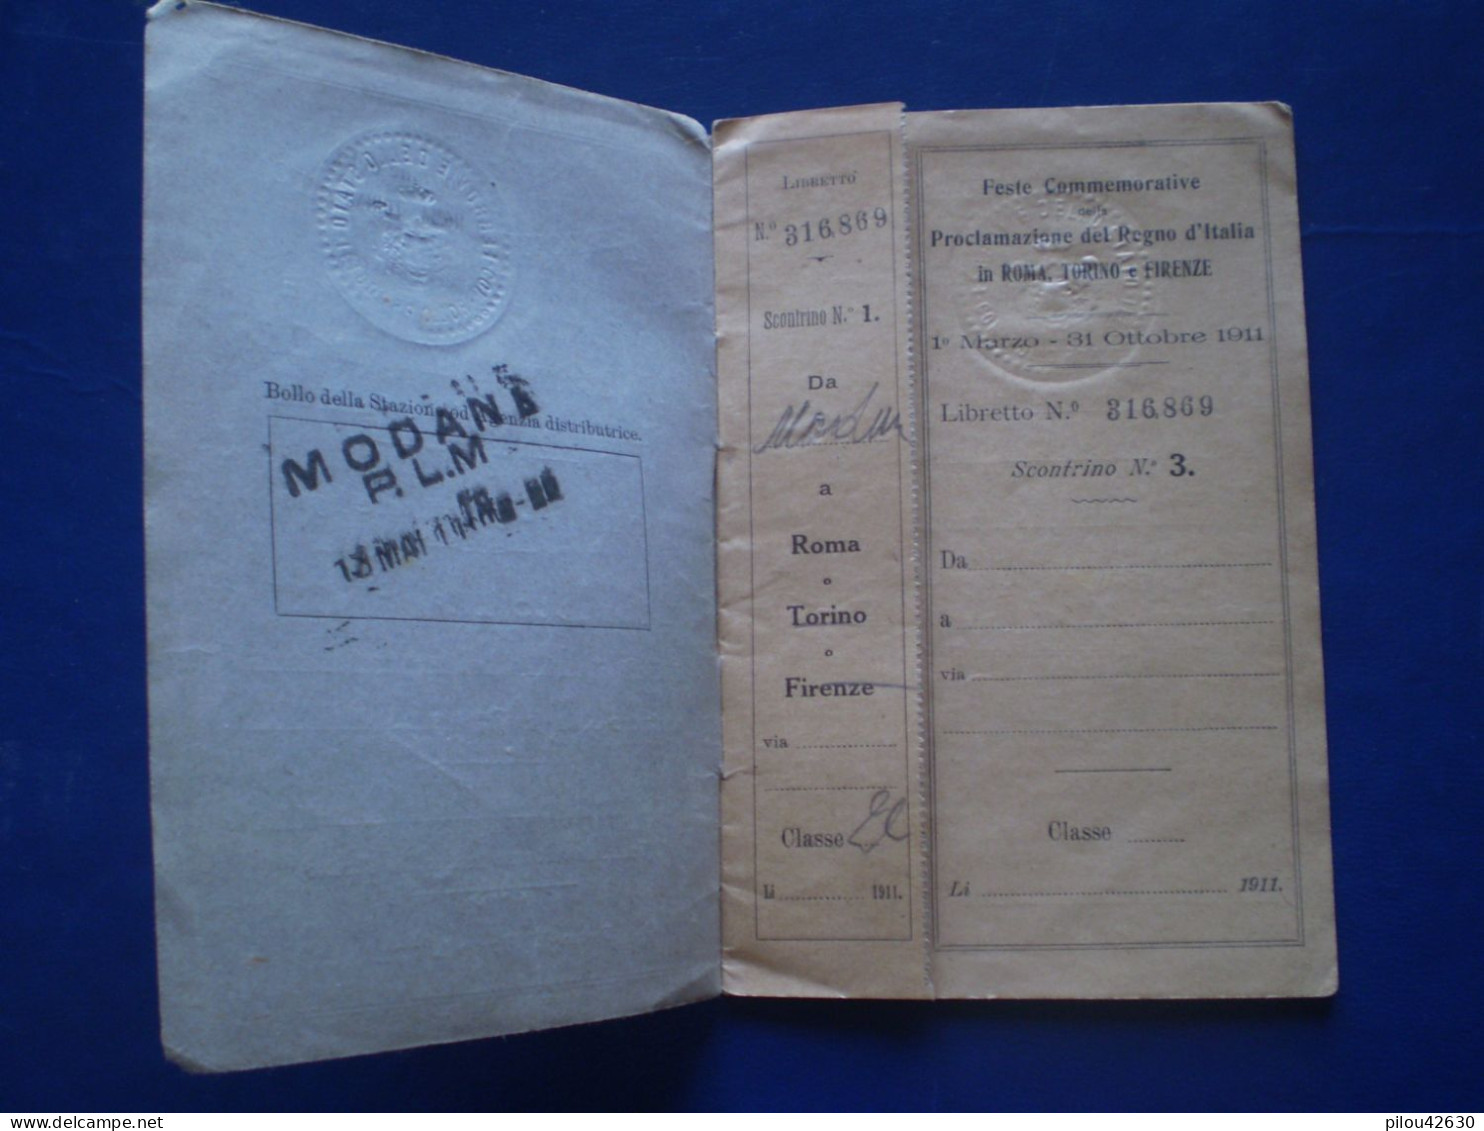 Bollo della Stazione od Agenzia distributrice.
MODANE
P.L.M
MAI 11
LIBRETTO
N.º 316.869
Scontrino N.º 1.
Da
Modane
a
Roma
o
Torino
o
Firenze
via
Classe 2e
Li 1911.
Feste Commemorative
della
Proclamazione del Regno d'Italia
in ROMA, TORINO e FIRENZE
1º Marzo - 31 Ottobre 1911
Libretto N.º 316.869
Scontrino N.º 3.
Da
a
via
Classe
Li 1911.
delcampe.net
pilou42630